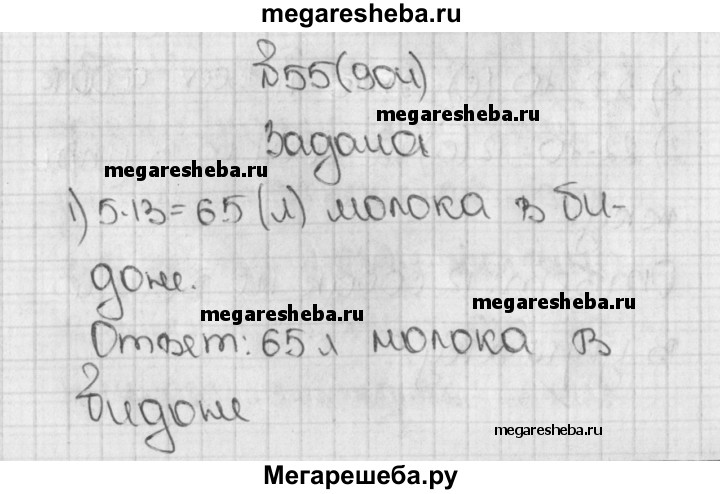 megaresheba.ru
№55(904)
megaresheba.ru
Задача
megaresheba.ru
1) 5·13=65 (л) молока в би-
доне.
megaresheba.ru
megaresheba.ru
Ответ: 65 л молока в
бидоне
megaresheba.ru
Мегарешеба.ру